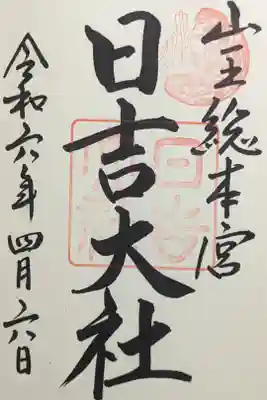 山王総本宮
日吉大社
令和六年四月六日